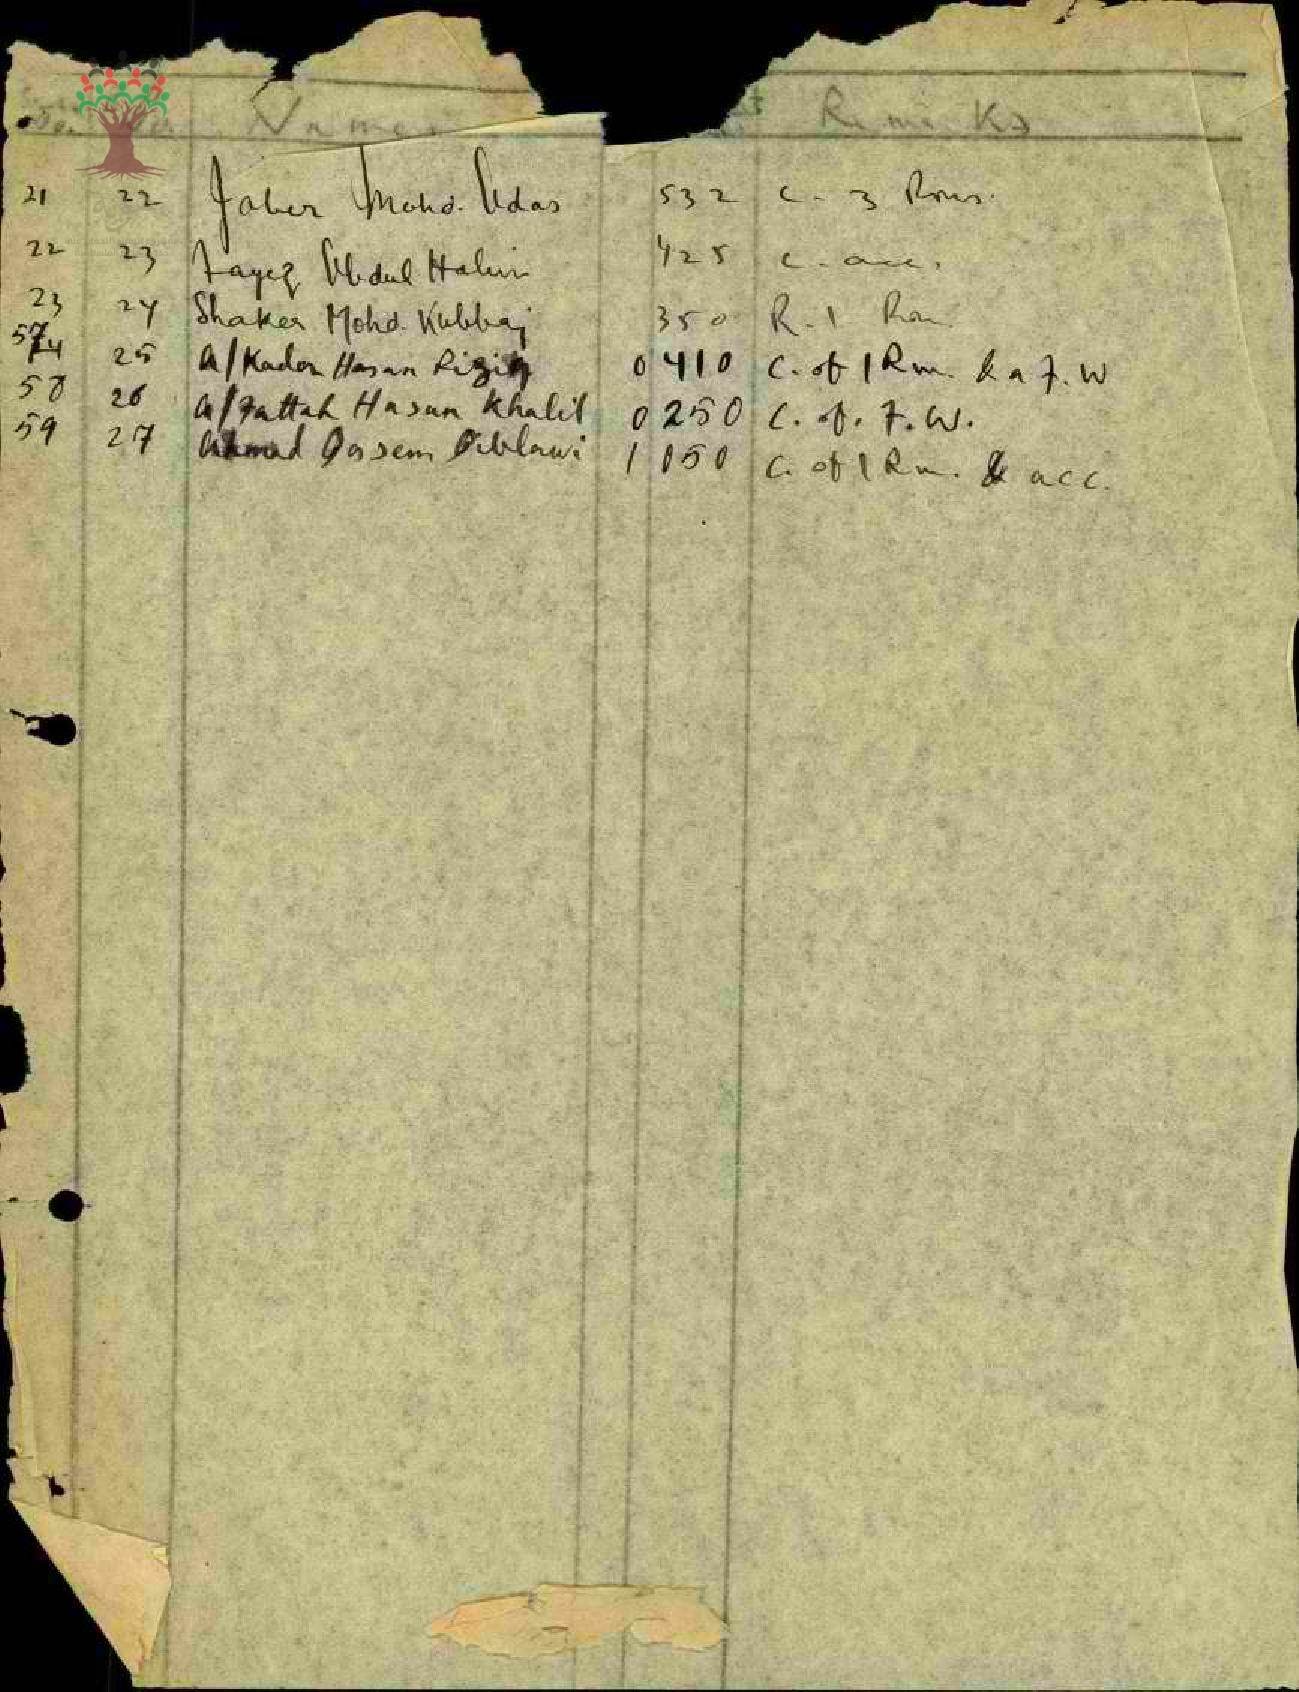 Names Remarks
21 22 Jaber Mohd. Udas 532 C. 3 Rms.
22 23 Fayez Abdul Halim 425 C. acc.
23 24 Shaker Mohd. Kubbaj 350 R. 1 Rm
57 25 A/Kader Hasan Riziq 0 410 C. of 1 Rm. & a F.W
58 26 A/Fattah Hasan Khalil 0 250 C. of. F.W.
59 27 Ahmad Qasem Diblawi 1 050 C. of 1 Rm. & acc.